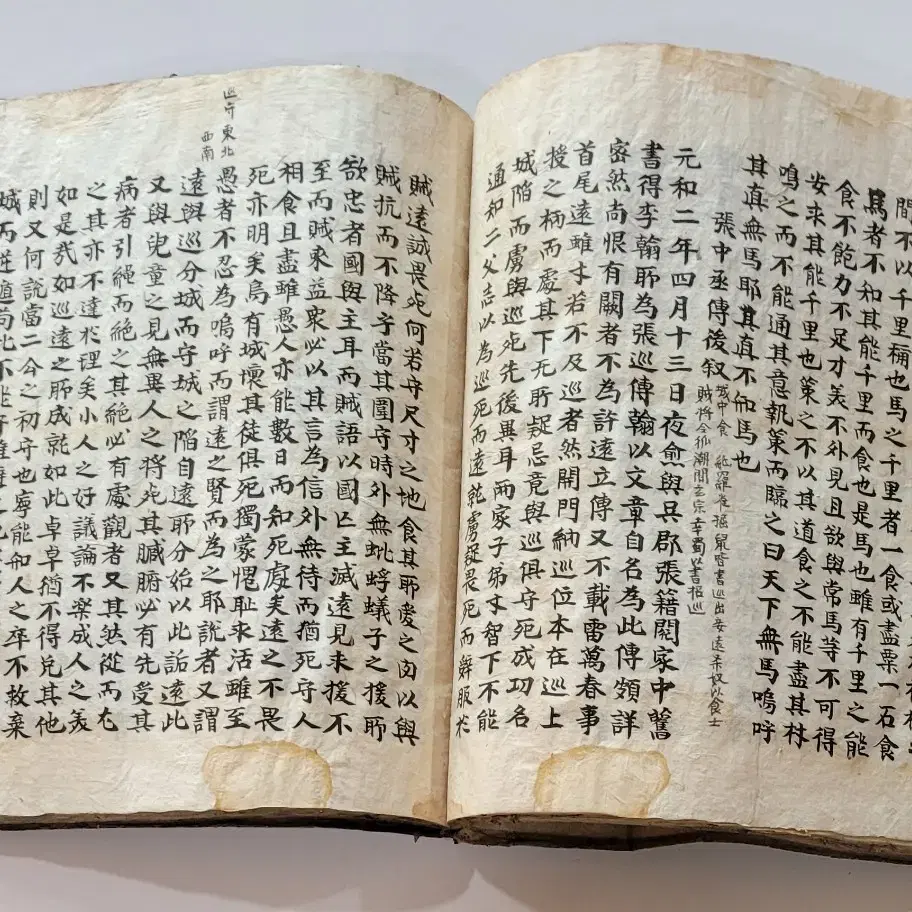 間不以千里稱也馬之千里者一食或盡粟一石食
馬者不知其能千里而食也是馬也雖有千里之能
食不飽力不足才美不外見且欲與常馬等不可得
安求其能千里也策之不以其道食之不能盡其材
鳴之而不能通其意執策而臨之曰天下無馬嗚呼
其真無馬耶其真不知馬也
張中丞傳後叙
城中食 羅雀掘鼠 巡出妾遠 奴以食士
賊將令狐潮聞玄宗幸蜀以書招巡
元和二年四月十三日夜愈與吳郡張籍閱家中舊
書得李翰所為張巡傳翰以文章自名為此傳頗詳
密然尚恨有闕者不為許遠立傳又不載雷萬春事
首尾遠雖才若不及巡者然開門納巡位本在巡上
授之柄而處其下无所疑忌竟與巡俱守死成功名
城陷而虜與巡死先後異耳兩家子弟才智下不能
通知二父志以為巡死而遠乾虜疑畏死而辭服於
賊遠誠畏死何若守尺寸之地食其所愛之肉以與
賊抗而不降乎當其圍守時外無蚍蜉蟻子之援所
欲忠者國與主耳而賊語以國亡主滅遠見求援不
至而賊來益衆必以其言為信外無待而猶死守人
相食且盡雖愚人亦能數日而知死處矣遠之不畏
死亦明矣烏有城壞其徒俱死獨蒙愧耻求活雖至
愚者不忍為嗚呼而謂遠之賢而為之耶說者又謂
巡守東北
西南
遠與巡分城而守城之陷自遠所分始以此詬遠此
又與兒童之見無異人之將死其臟腑必有先受其
病者引繩而絕之其絕必有處觀者又其然從而尤
之其亦不達於理矣小人之好議論不樂成人之美
如是哉如巡遠之所成就如此卓卓猶不得免其他
則又何說當二公之初守也寧能知人之卒不救棄
城而逆遁苟此不能守雖